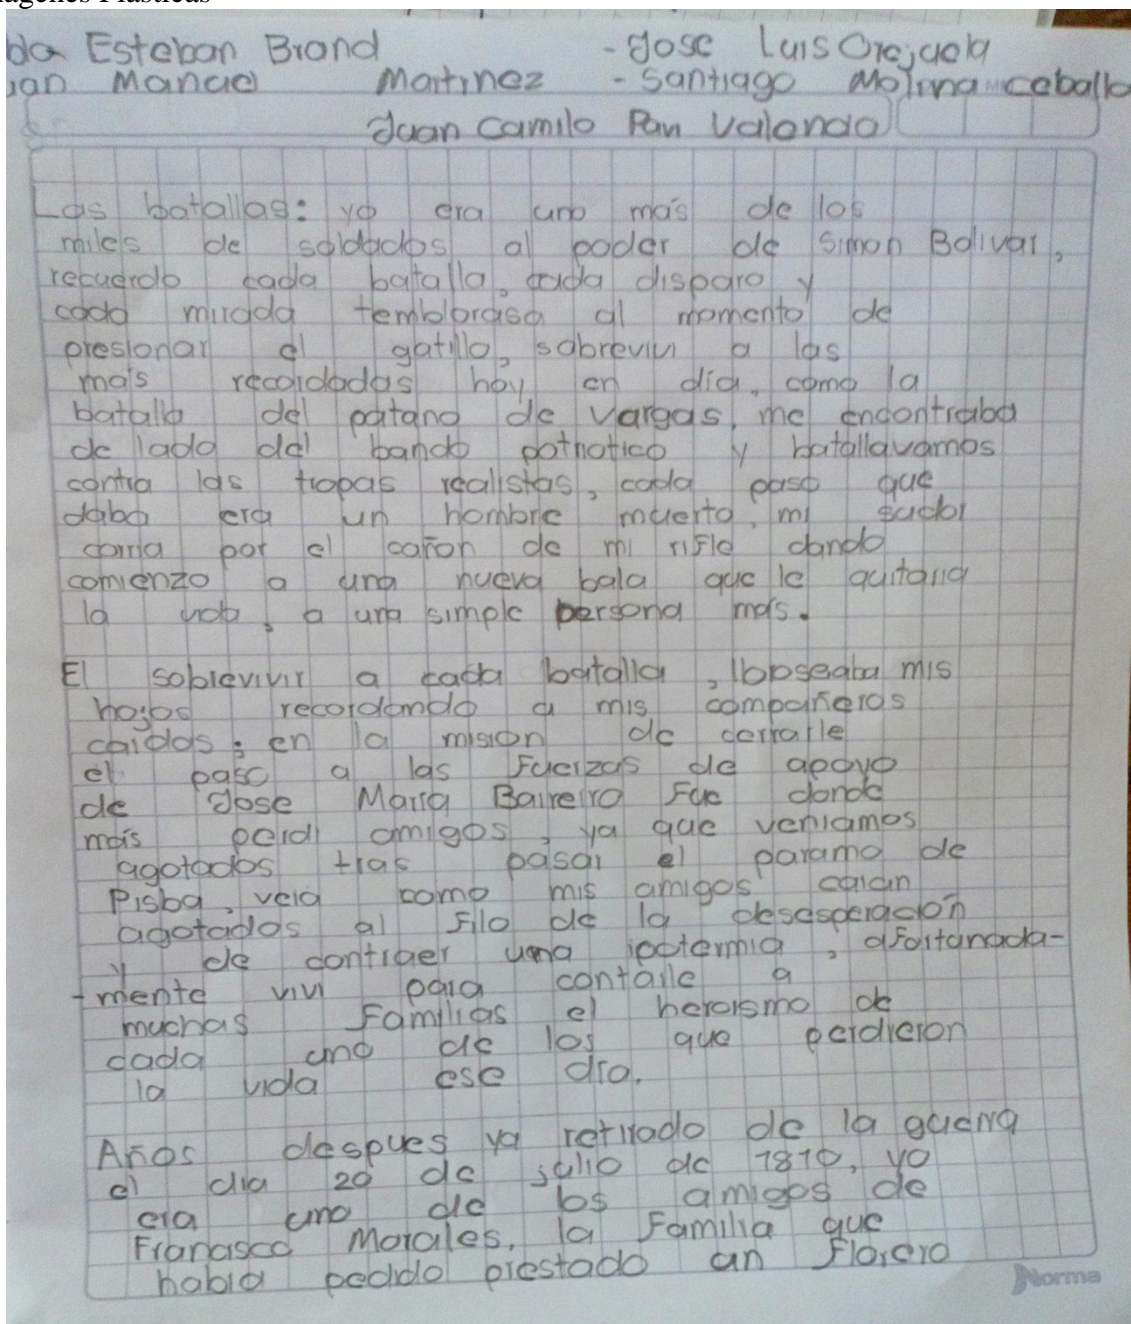 agenes Plasticas
da Esteban Brand - Jose Luis Orejuela
uan Manuel Martinez - Santiago Molina ceballo
Juan camilo Pan Valondo
Las batallas: yo era uno más de los
miles de soldados al poder de simon Bolivar,
recuerdo cada batalla, cada disparo y
cada mirada temblorosa al momento de
presionar el gatillo, sobrevivi a las
más recordadas hoy en día, como la
batalla del patano de vargas, me encontraba
de lado del bando patriotico y batallavamos
contra las tropas realistas, cada paso que
daba era un hombre muerto, mi sudor
corria por el cañon de mi rifle dando
comienzo a una nueva bala que le quitaria
la vida, a una simple persona más.
El sobrevivir a cada batalla, lopseaba mis
hojos recordando a mis compañeros
caidos; en la mision de cerrarle
el paso a las Fuerzas de apoyo
de Jose Maria Baireiro Fue donde
más perdi amigos, ya que veniamos
agotados tras pasar el paramo de
Pisba, veia como mis amigos caian
agotados al Filo de la desesperación
y de contraer una ipotermia, afortunada-
-mente vivi para contarle a
muchas Familias el heroismo de
cada uno de los que perdieron
la vida ese día.
Años despues ya retirado de la guerra
el dia 20 de julio de 1810, yo
era uno de los amigos de
Francisco Morales, la Familia que
habia pedido prestado un Florero
Norma